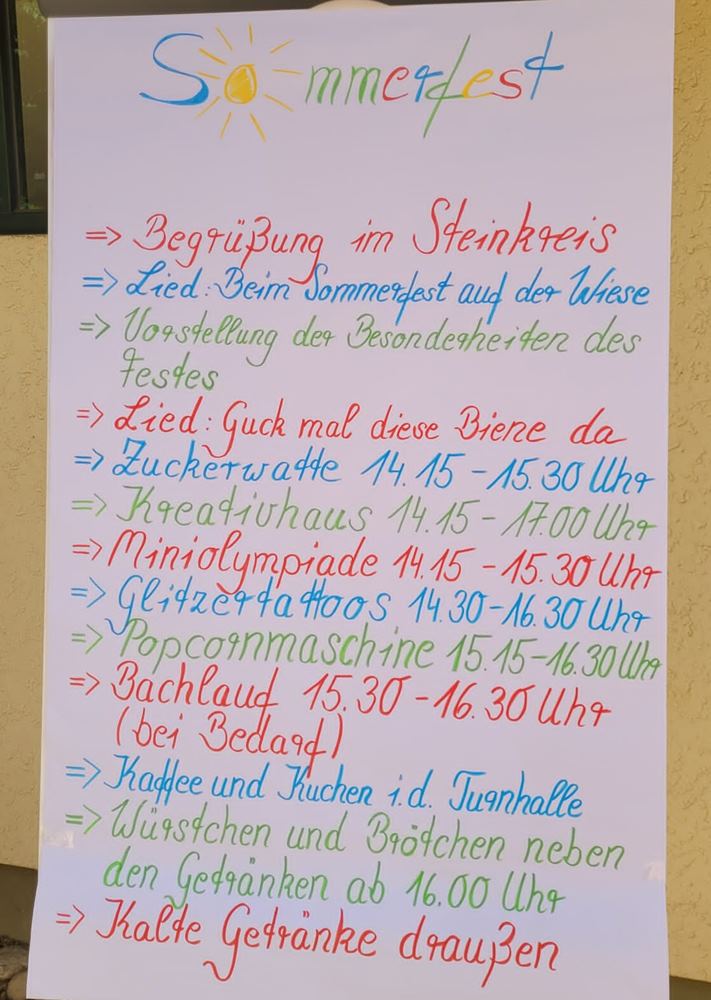 Sommerfest
=> Begrüßung im Steinkreis
=> Lied: Beim Sommerfest auf der Wiese
=> Vorstellung der Besonderheiten des
Festes
=> Lied: Guck mal diese Biene da
=> Zuckerwatte 14.15 - 15.30 Uhr
=> Kreativhaus 14.15 - 17.00 Uhr
=> Miniolympiade 14.15 - 15.30 Uhr
=> Glitzertattoos 14.30 - 16.30 Uhr
=> Popcornmaschine 15.15 - 16.30 Uhr
=> Bachlauf 15.30 - 16.30 Uhr
(bei Bedarf)
=> Kaffee und Kuchen i.d. Turnhalle
=> Würstchen und Brötchen neben
den Getränken ab 16.00 Uhr
=> Kalte Getränke draußen